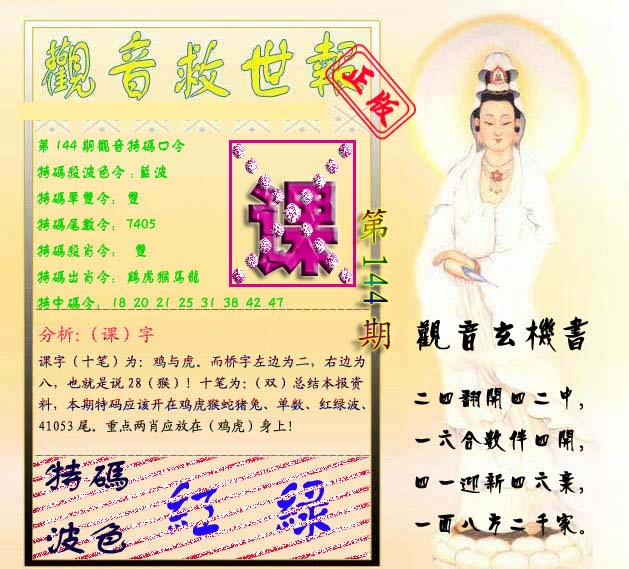 觀音救世報
正版
第144期觀音特碼口令
特碼殺波色令:藍波
特碼單雙令: 雙
特碼尾數令: 7405
特碼殺肖令: 雙
特碼出肖令: 鷄虎猴馬龍
特中碼令: 18 20 21 25 31 38 42 47
课
第144期
分析:(课)字
课字(十笔)为:鸡与虎。而桥字左边为二,右边为
八,也就是说28(猴)!十笔为:(双)总结本报资
料,本期特码应该开在鸡虎猴蛇猪兔、单数、红绿波、
41053尾。重点两肖应放在(鸡虎)身上!
特碼
波色
紅 綠
觀音玄機書
二四翻開四二中,
一六合數伴四開,
四一迎新四六業,
一面八方二千家。